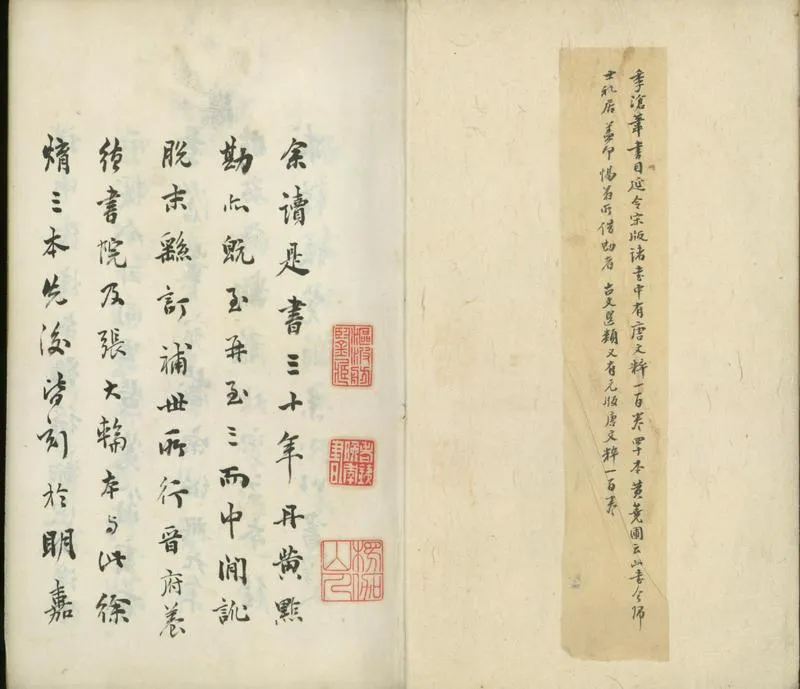 季滄葦書目延令宋版諸書中有唐文粹一百卷四十本黄蕘圃云此書今歸
士礼居蓋即惕甫所借勘者古文選類又有元版唐文粹一百卷
楞伽山人
余讀是書三十年丹黄點
勘亦既至再至三而中間訛
脱末繇訂補世所行晉府養
德書院及張大輪本与此徐
焴三本先後皆刻於明嘉